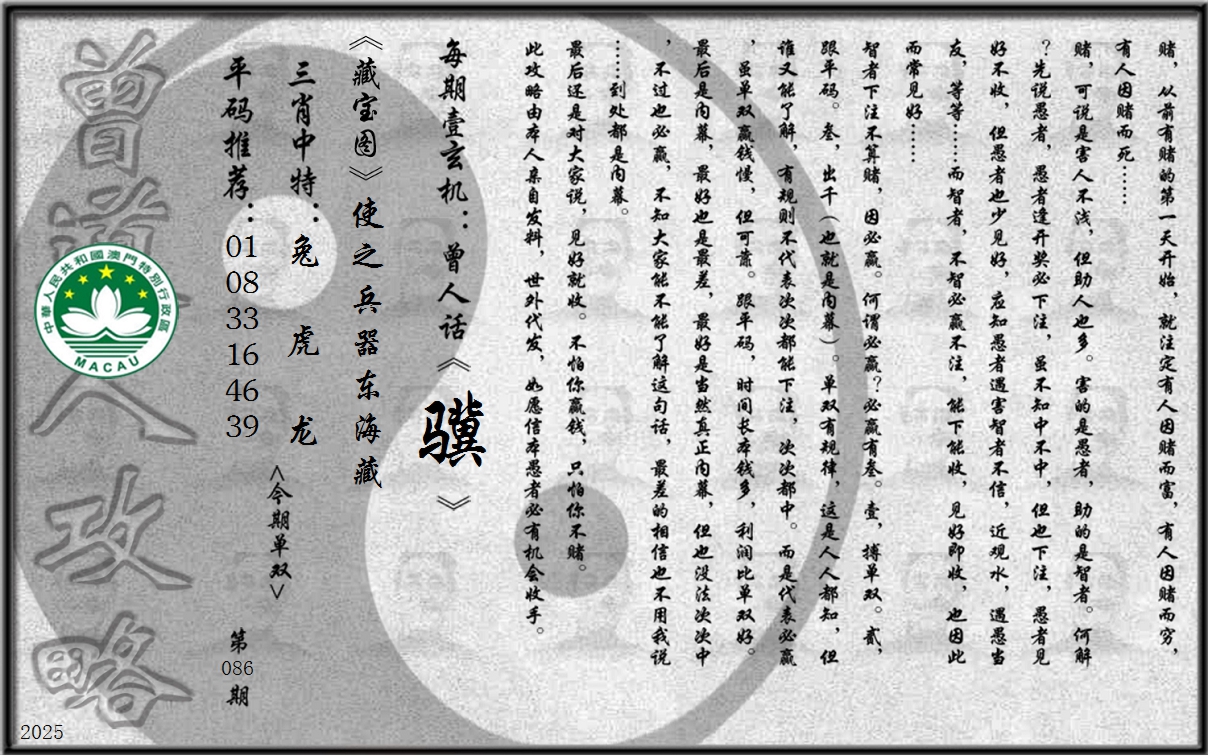 赌，从前有赌的第一天开始，就注定有人因赌而富，有人因赌而穷，
有人因赌而死……
赌，可说是害人不浅，但助人也多。害的是愚者，助的是智者。何解
？先说愚者，愚者逢开奖必下注，虽不知中不中，但也下注，愚者见
好不收，但愚者也少见好，应知愚者遇害智者不信，近观水，遇愚当
友，等等……而智者，不智必赢不注，能下能收，见好即收，也因此
而常见好……
智者下注不算赌，因必赢。何谓必赢？必赢有叁。壹，搏单双。贰，
跟平码。叁，出千（也就是内幕）。单双有规律，这是人人都知，但
谁又能了解，有规则不代表次次都能下注，次次都中。而是代表必赢
，虽单双赢钱慢，但可靠。跟平码，时间长本钱多，利润比单双好。
最后是内幕，最好也是最差，最好是当然真正内幕，但也没法次次中
，不过也必赢，不知大家能不能了解这句话，最差的相信也不用我说
……到处都是内幕。
最后还是对大家说，见好就收。不怕你赢钱，只怕你不赌。
此攻略由本人亲自发料，世外代发，如愿信本愚者必有机会收手。
每期壹玄机：曾人话《骥》
《藏宝图》使之兵器东海藏
三肖中特：兔 虎 龙
<今期单双>
平码推荐：01 08 33 16 46 39
第086期
曾道人攻略
中華人民共和國澳門特別行政區
MACAU
2025